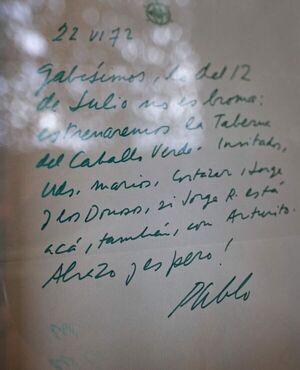 22 VI 72
Gabísimos, lo del 12
de Julio no es broma:
estrenaremos la Taberna
del Caballo Verde. Invitados,
Uds. Marios, Cortázar, Jorge
y los Donoso, si Jorge R. está
acá, también, con Arturito.
Abrazo y espero!
Pablo